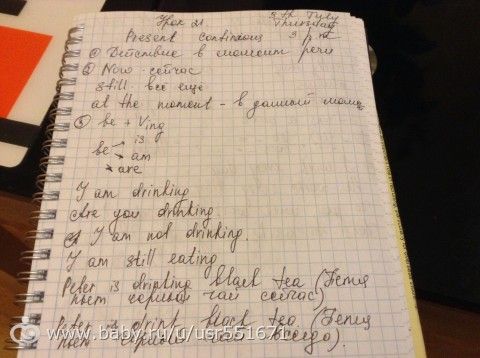 Урок 21
5 th July
Thursday
Present continuous
① Действие в момент речи
② Now - сейчас
still - все еще
at the moment - в данный момен
③ be + Ving
be is
am
are
I am drinking
Are you drinking
I am not drinking.
I am still eating
Peter is drinking black tea (Петя
пьет черный чай сейчас)
black tea (Петя
www.baby.ru/u/usr551671